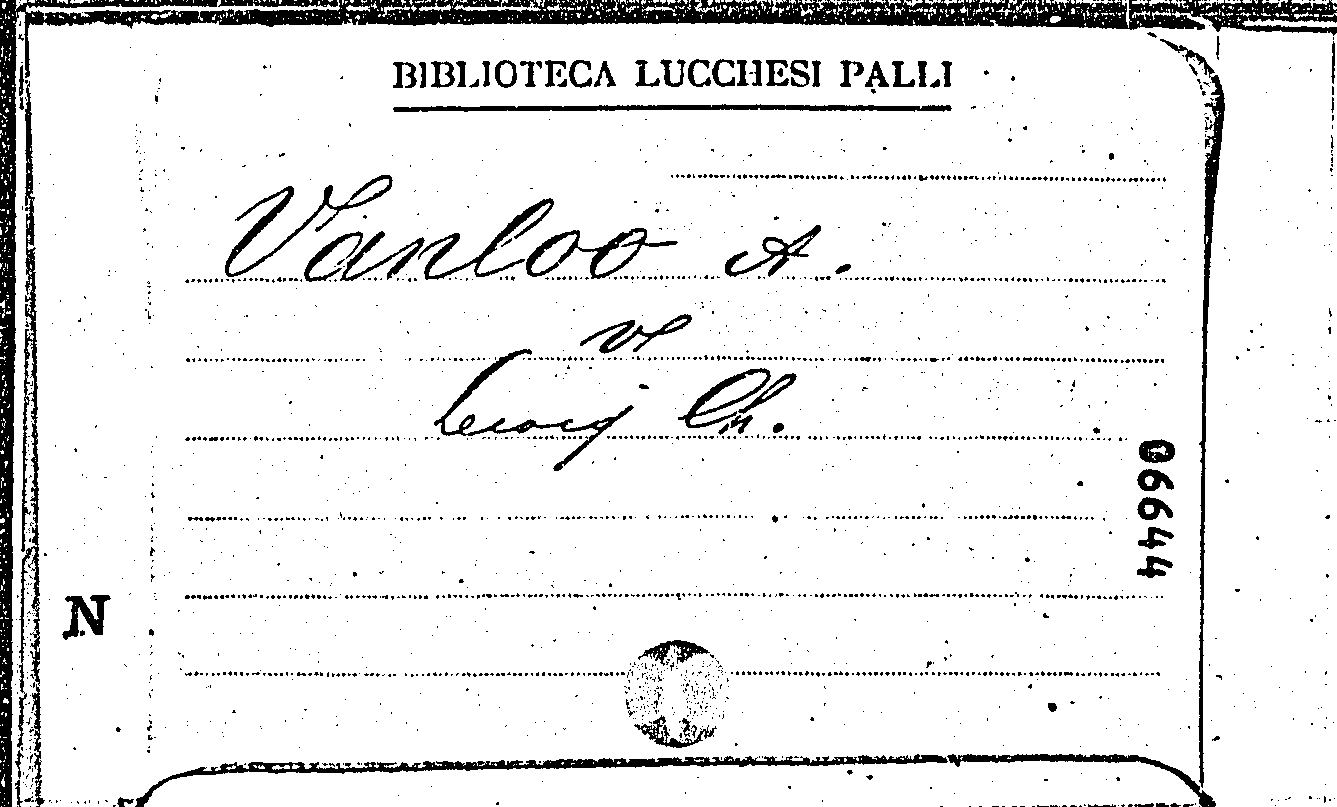 BIBLIOTECA LUCCHESI PALLI
Vanloo A.
Leroy Ch.
06644
N